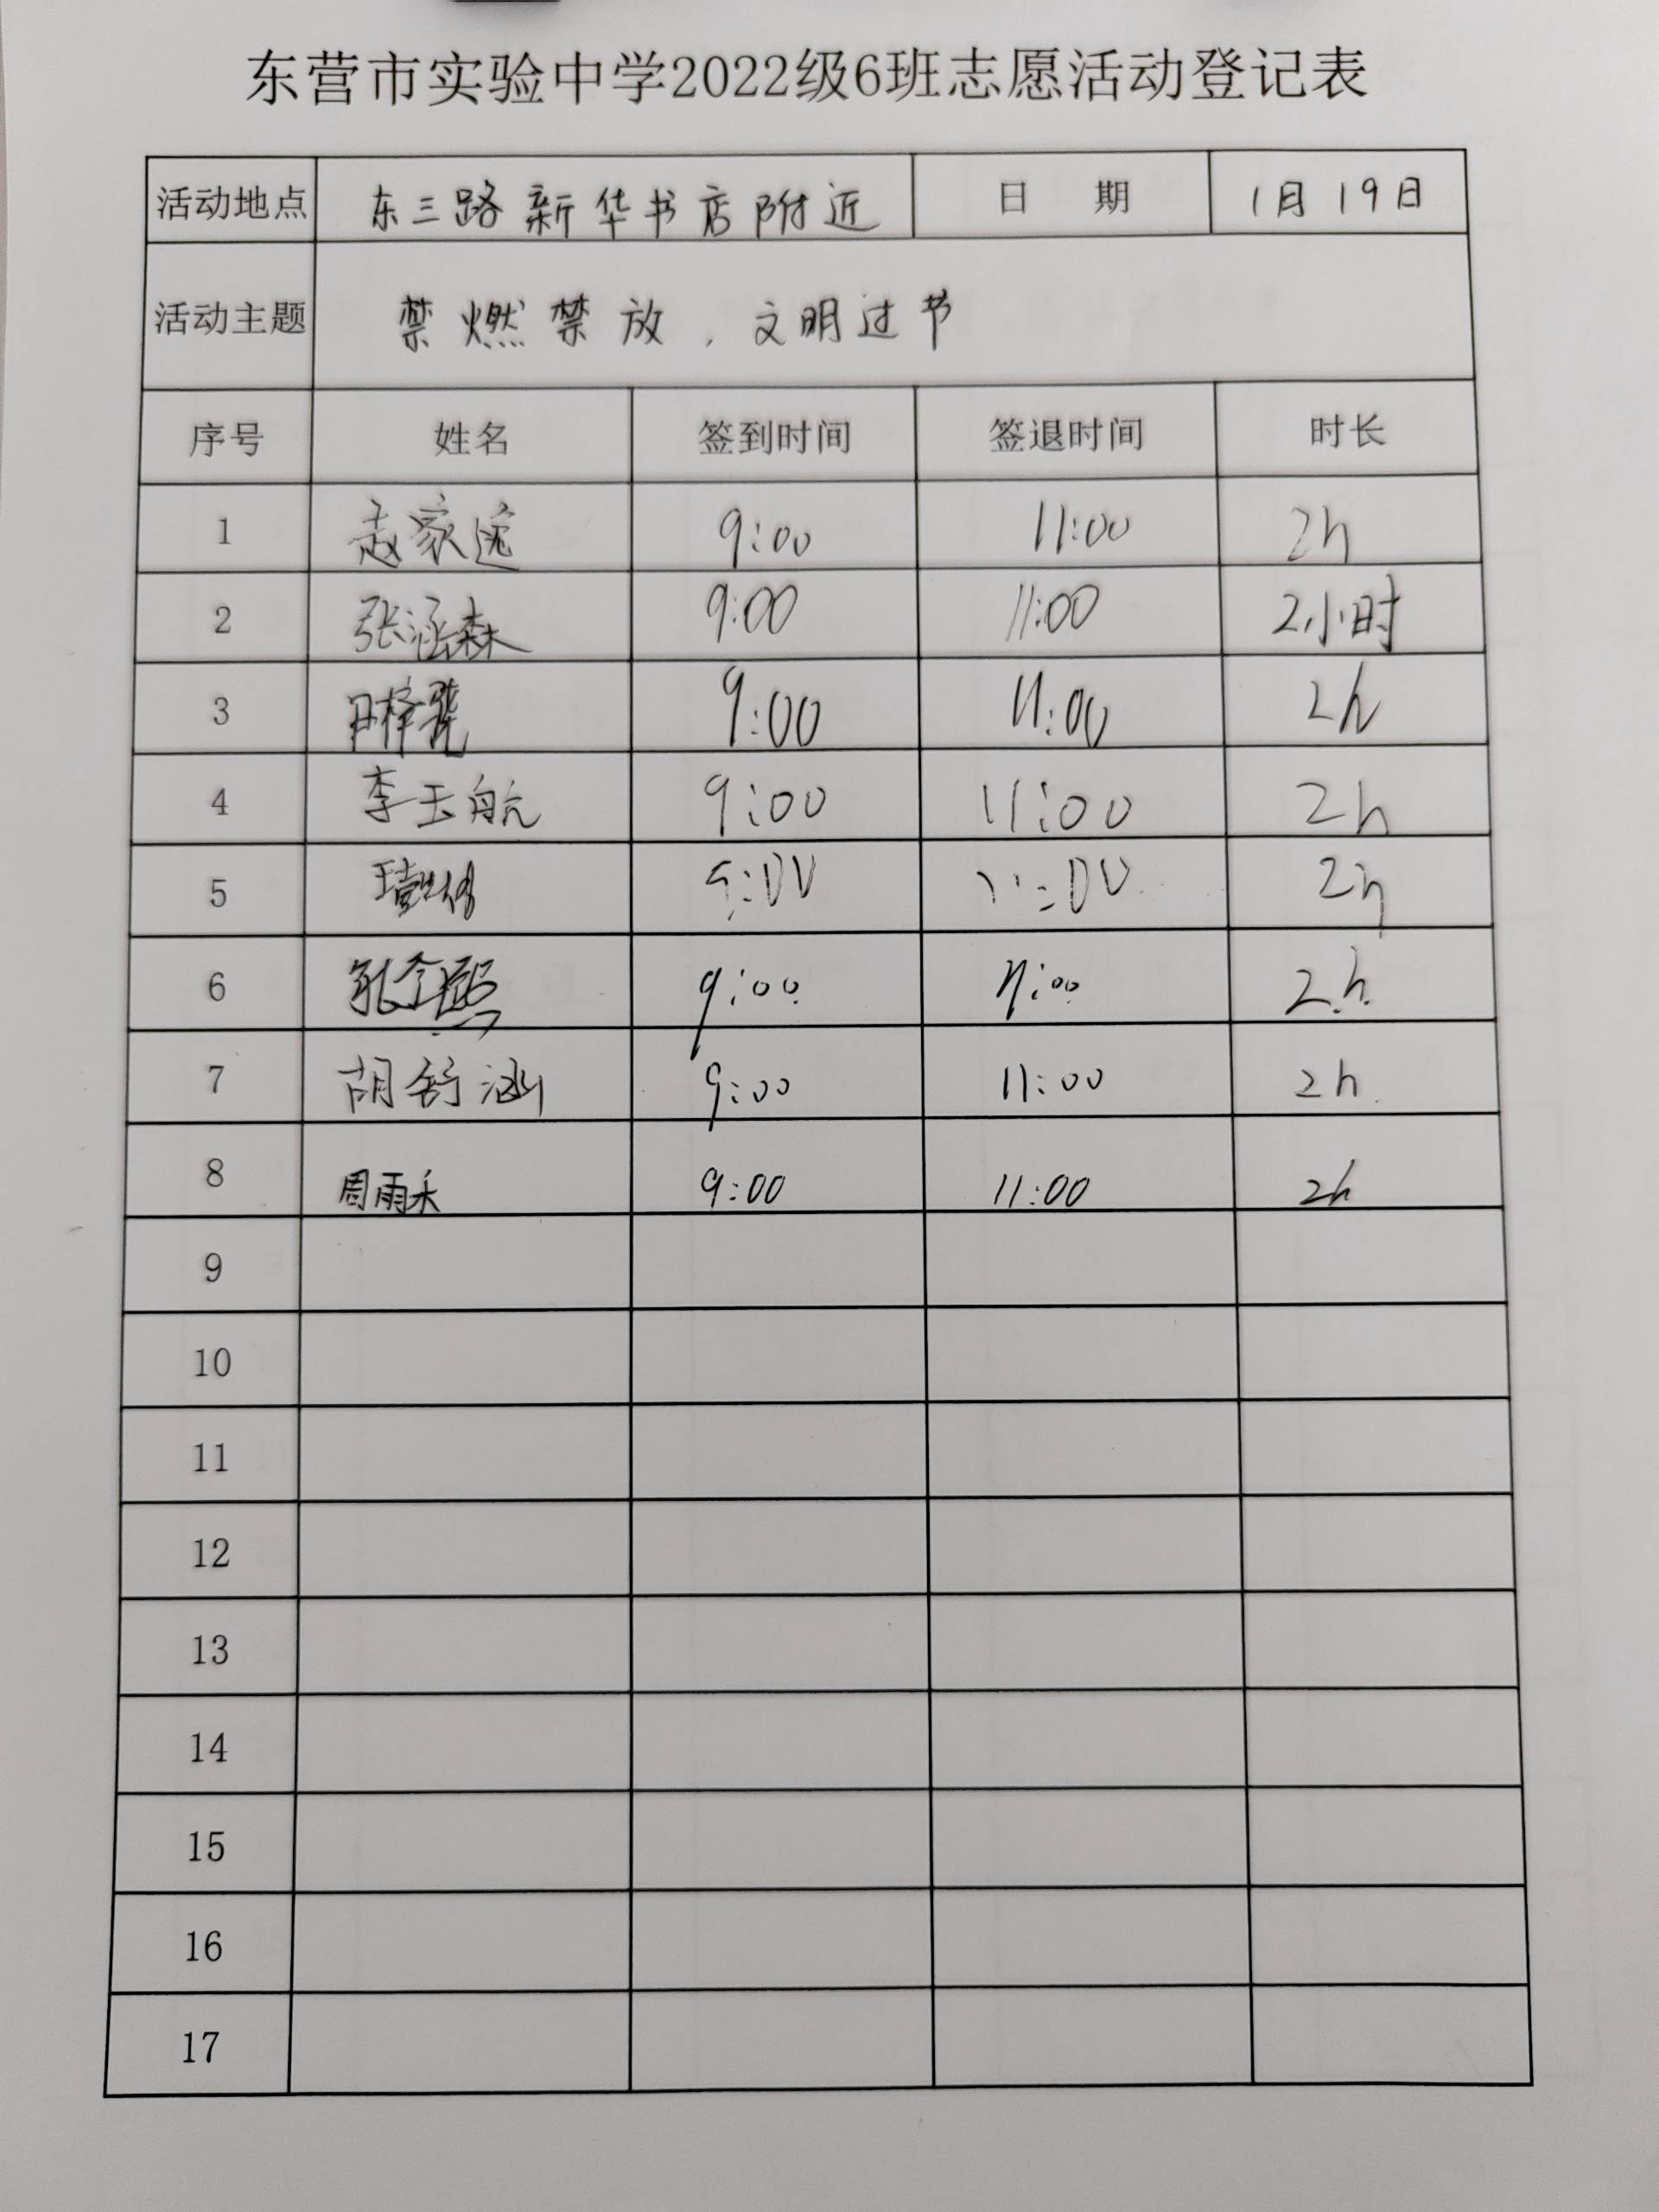 东营市实验中学2022级6班志愿活动登记表
活动地点 东三路新华书店附近 日 期 1月19日
活动主题 禁燃禁放，文明过节
序号 姓名 签到时间 签退时间 时长
1 赵家逸 9:00 11:00 2h
2 张涵森 9:00 11:00 2小时
3 9:00 11:00 2h
4 李玉航 9:00 11:00 2h
5 9:00 11:00 2h
6 9:00 11:00 2h
7 胡舒涵 9:00 11:00 2h
8 周雨禾 9:00 11:00 2h
9
10
11
12
13
14
15
16
17